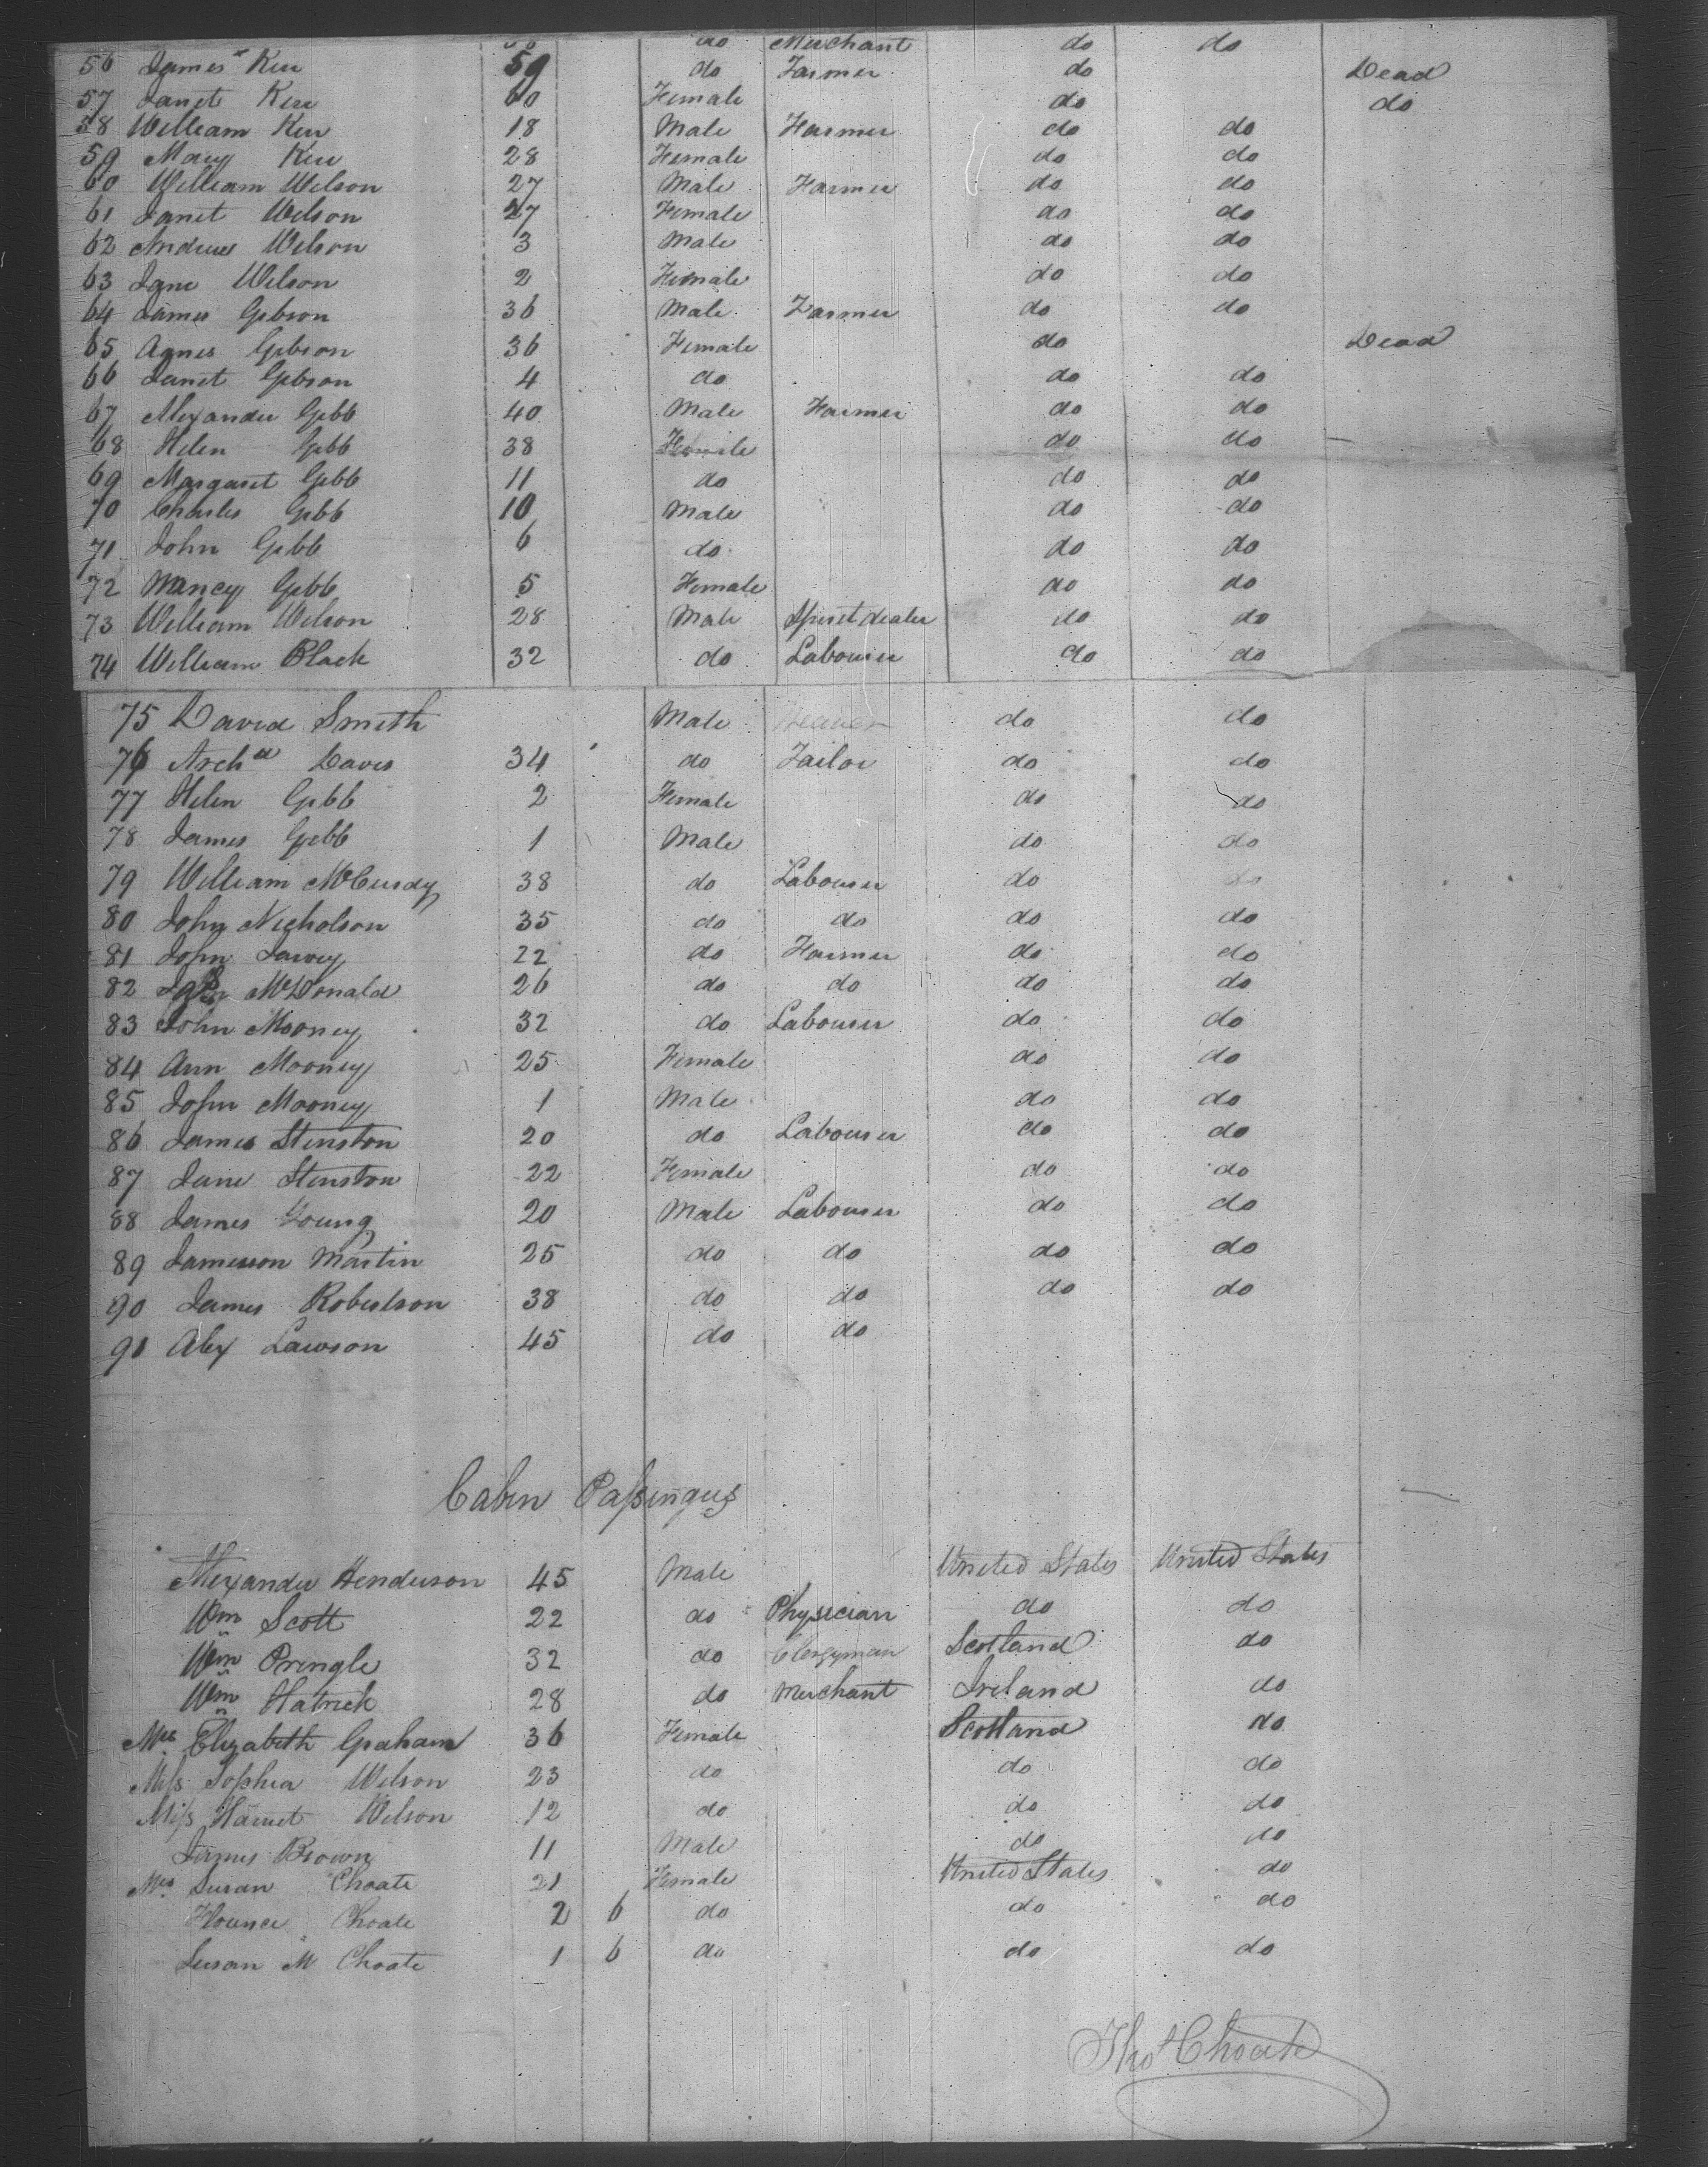 do Merchant do do
56 James Kerr 59 do Farmer do Dead
57 Janet Kerr 60 Female do do
58 William Kerr 18 Male Farmer do do
59 Mary Kerr 28 Female do do
60 William Wilson 27 Male Farmer do do
61 Janet Wilson 27 Female do do
62 Andrew Wilson 3 Male do do
63 Jane Wilson 2 Female do do
64 James Gibson 36 Male Farmer do do
65 Agnes Gibson 36 Female do Dead
66 Janet Gibson 4 do do do
67 Alexander Gibb 40 Male Farmer do do
68 Helen Gibb 38 Female do do
69 Margaret Gibb 11 do do do
70 Charles Gibb 10 Male do do
71 John Gibb 6 do do do
72 Nancy Gibb 5 Female do do
73 William Wilson 28 Male Spirit dealer do do
74 William Black 32 do Labourer do do
75 David Smith Male do do
76 Archd Davis 34 do Tailor do do
77 Helen Gibb 2 Female do do
78 James Gibb 1 Male do do
79 William McCurdy 38 do Labourer do do
80 John Nicholson 35 do do do do
81 John 22 do Farmer do do
82 McDonald 26 do do do do
83 John Mooney 32 do Labourer do do
84 Ann Mooney 25 Female do do
85 John Mooney 1 Male do do
86 James Stenston 20 do Labourer do do
87 Jane Stenston 22 Female do do
88 James Young 20 Male Labourer do do
89 Jameson Martin 25 do do do do
90 James Robertson 38 do do do do
91 Alex Lawson 45 do do
Cabin Passengers
Alexander Henderson 45 Male United States United States
Wm Scott 22 do Physician do do
Wm Pringle 32 do Clergyman Scotland do
Wm Hatrick 28 do Merchant Ireland do
Mrs Elizabeth Graham 36 Female Scotland do
Miss Sophia Wilson 23 do do do
Miss Harriet Wilson 12 do do do
James Brown 11 Male do do
Mrs Susan Choate 21 Female United States do
Florence Choate 2 6 do do do
Susan M Choate 1 6 do do do
Thos Choate